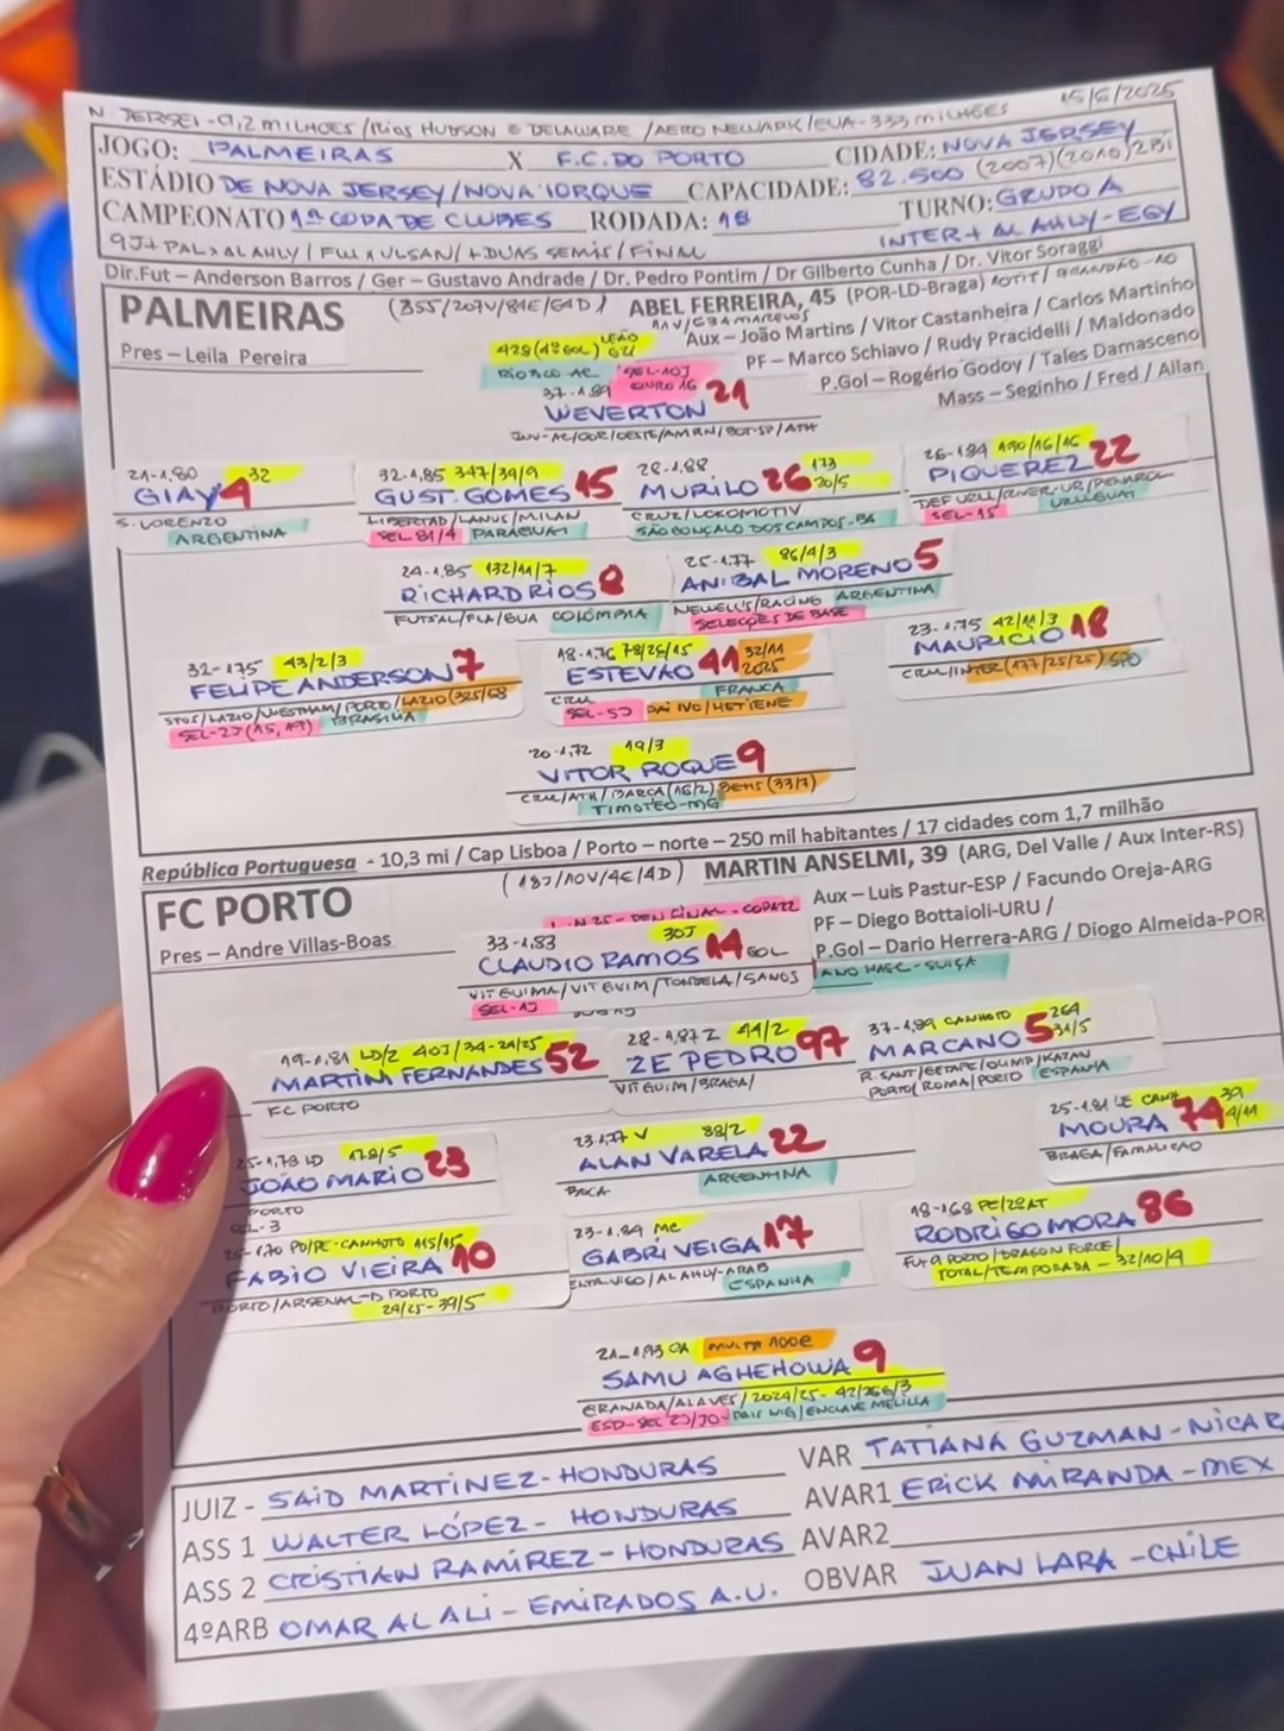 N. JERSEI-9,2 MILHOES / RIOS HUDSON E DELAWARE / AERO NEWARK/EUA-333 MILHÕES 15/6/2025
JOGO: PALMEIRAS X F.C. DO PORTO CIDADE: NOVA JERSEY
ESTÁDIO DE NOVA JERSEY/NOVA IORQUE CAPACIDADE: 82.500 (2007)(2010) 2Bi
CAMPEONATO 1ª COPA DE CLUBES RODADA: 1ª TURNO: GRUPO A
9J+PALXALAHLY / FLU X ULSAN/ + DUAS SEMIS/FINAL INTER + AL AHLY-EGY
Dir.Fut – Anderson Barros / Ger – Gustavo Andrade / Dr. Pedro Pontim / Dr Gilberto Cunha / Dr. Vitor Soraggi
PALMEIRAS (355/207V/84E/64D) ABEL FERREIRA, 45 (POR-LD-Braga)
Pres – Leila Pereira
Aux – João Martins / Vitor Castanheira / Carlos Martinho
PF – Marco Schiavo / Rudy Pracidelli / Maldonado
P.Gol – Rogério Godoy / Tales Damasceno
Mass – Seginho / Fred / Allan
428(4º GOL) LEÃO
RIO BCO AC SEL-10J
37-1,89 OURO 16
WEVERTON 21
21-1,80 32
GIAY 4
S. LORENZO
ARGENTINA
32-1,85 347/39/9
GUST. GOMES 15
LIBERTAD/LANUS/MILAN
SEL 81/4 PARAGUAI
28-1,88 173
MURILO 26 20/5
CRUZ/LOKOMOTIV
SÃO GONÇALO DOS CAMPOS-BA
26-1,84 190/16/16
PIQUEREZ 22
DEF URU/RIVER-UR/PENAROL
SEL-15 URUGUAI
24-1,85 132/11/7
RICHARD RIOS 8
FUTSAL/FLA/GUA COLÔMBIA
25-1,77 86/4/3
ANIBAL MORENO 5
NEWELL'S/RACING ARGENTINA
SELEÇÕES DE BASE
23-1,75 42/11/3
MAURICIO 18
CRU/INTER (177/25/25) SPO
32-1,75 43/2/3
FELIPE ANDERSON 7
STOS/LAZIO/WESTHAM/PORTO/LAZIO (325/58
SEL-2J (15, 17) BRASILIA
18-1,76 78/26/15 32/11
ESTEVÃO 41 2025
CRU FRANCA
SEL-5J PAI IVO/HETIENE
20-1,72 19/3
VITOR ROQUE 9
CRU/ATH/BARÇA (16/2) BETIS (33/7)
TIMOTEO-MG
República Portuguesa - 10,3 mi / Cap Lisboa / Porto – norte – 250 mil habitantes / 17 cidades com 1,7 milhão
FC PORTO (18J/10V/4E/4D) MARTIN ANSELMI, 39 (ARG, Del Valle / Aux Inter-RS)
Pres – Andre Villas-Boas
Aux – Luis Pastur-ESP / Facundo Oreja-ARG
PF – Diego Bottaioli-URU /
P.Gol – Dario Herrera-ARG / Diogo Almeida-POR
33-1,83 30J
CLAUDIO RAMOS 14 GOL
VIT GUIMA/VIT GUIM/TONDELA/5ANOS
SEL-1J
19-1,81 LD/Z 40J/34-24/25
MARTIM FERNANDES 52
FC PORTO
28-1,87 Z 44/2
ZE PEDRO 97
VIT GUIM/BRAGA/
37-1,89 CANHOTO 264
MARCANO 5 31/5
R.SANT/GETAFE/OLIMP/KAZAN
PORTO/ROMA/PORTO ESPANHA
25-1,81 LE CANH 39
MOURA 74 4/11
BRAGA/FAMALICAO
25-1,78 LD 178/5
JOÃO MARIO 23
PORTO
SEL-3
23-1,77 V 88/2
ALAN VARELA 22
BOCA ARGENTINA
25-1,70 PD/PE-CANHOTO 115/15
FABIO VIEIRA 10
PORTO/ARSENAL-D PORTO
24/25-39/5
23-1,84 MC
GABRI VEIGA 17
CELTA VIGO/AL AHLY-ARAB
ESPANHA
18-1,68 PE/2ºAT
RODRIGO MORA 86
FUT 9 PORTO/DRAGON FORCE/
TOTAL/TEMPORADA – 32/10/4
21-1,93 CA MULTA 100€
SAMU AGHEHOWA 9
GRANADA/ALAVES/2024/25-42/26G/3
ESP-SEL 2J/ PAIS NIG/ENCLAVE MELILLA
JUIZ - SAID MARTINEZ-HONDURAS VAR TATIANA GUZMAN-NICAR
ASS 1 WALTER LÓPEZ- HONDURAS AVAR1 ERICK MIRANDA-MEX
ASS 2 CRISTIAN RAMÍREZ-HONDURAS AVAR2
4ºARB OMAR AL ALI-EMIRADOS A.U. OBVAR JUAN LARA-CHILE